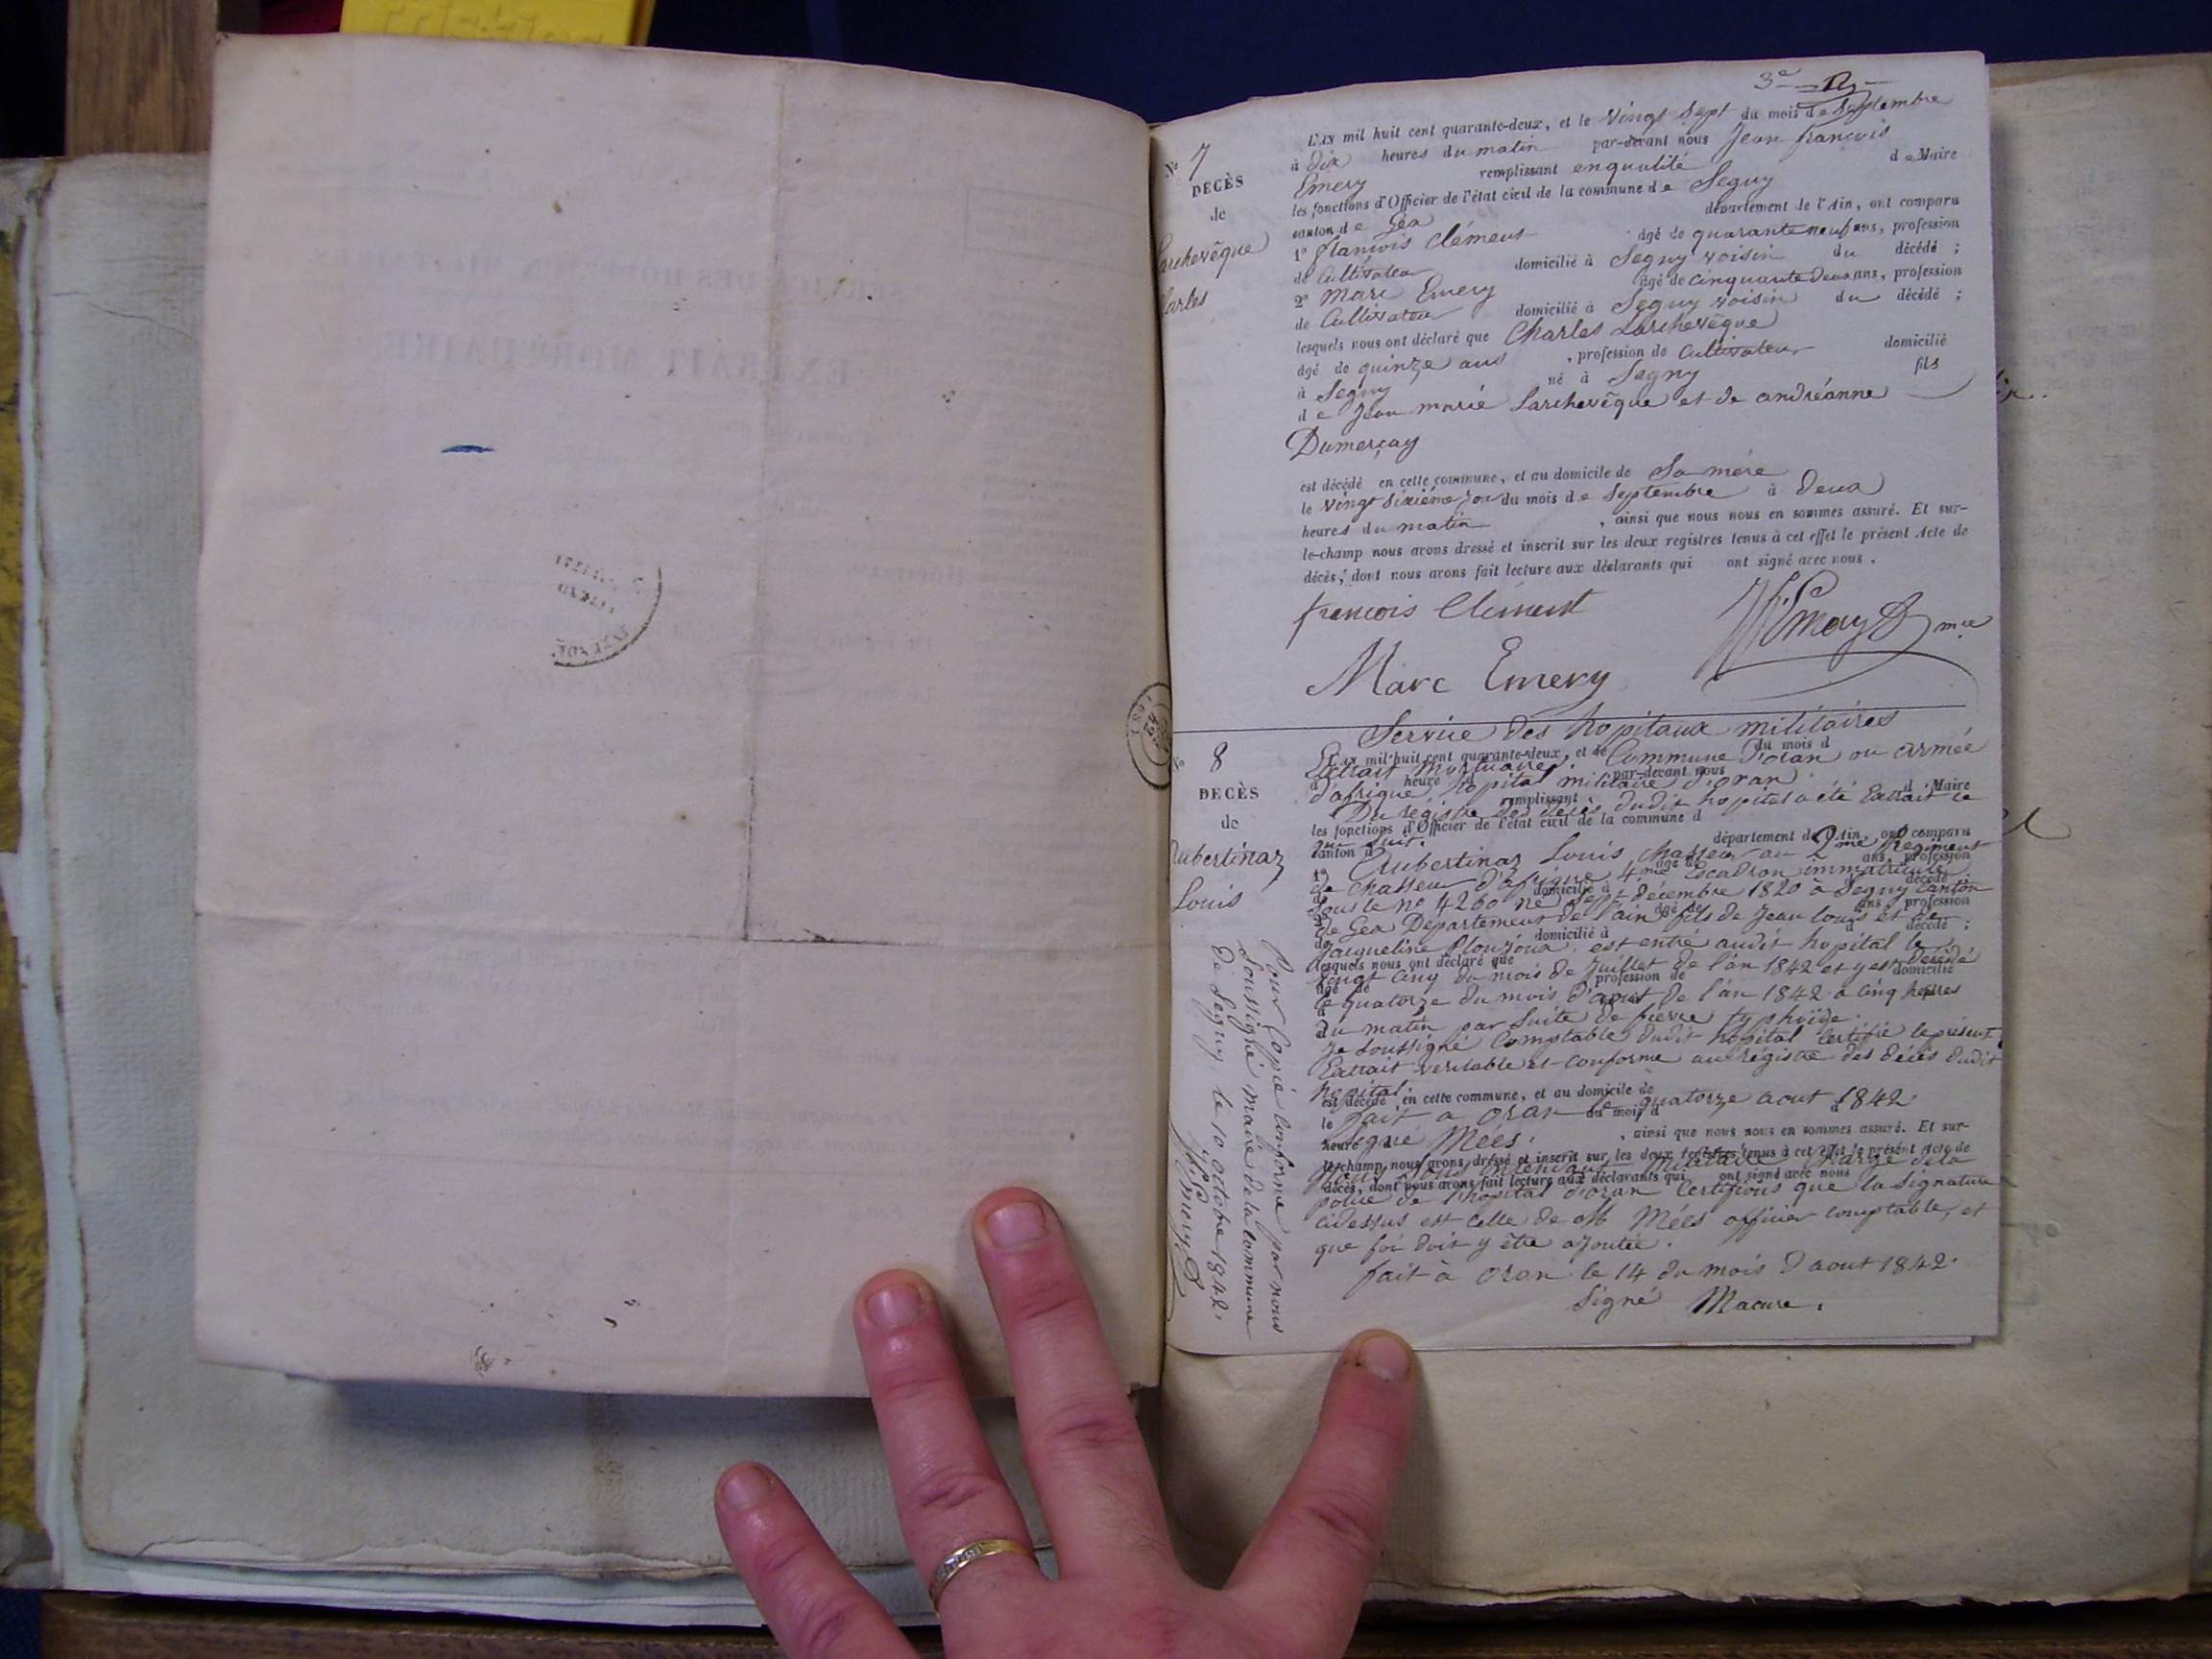 3e
No 7
DECÈS
de
Larchevêque
Charles
L'an mil huit cent quarante-deux, et le vingt sept du mois de Septembre
à dix heures du matin par-devant nous Jean françois
Emery remplissant en qualité de Maire
les fonctions d'Officier de l'état civil de la commune de Segny
canton de Gex département de l'Ain, ont comparu
1° françois Clément âgé de quarante neuf ans, profession
de Cultivateur domicilié à Segny voisin du décédé ;
2° Marc Emery âgé de cinquante deux ans, profession
de Cultivateur domicilié à Segny voisin du décédé ;
lesquels nous ont déclaré que Charles Larchevêque
âgé de quinze ans , profession de Cultivateur domicilié
à Segny né à Segny fils
de Jean marie Larchevêque et de andréanne
Dumerçay
est décédé en cette commune, et au domicile de Sa mère
le vingt sixième jour du mois de Septembre à deux
heures du matin , ainsi que nous nous en sommes assuré. Et sur-
le-champ nous avons dressé et inscrit sur les deux registres tenus à cet effet le présent Acte de
décès, dont nous avons fait lecture aux déclarants qui ont signé avec nous .
françois Clément
JF Emery mre
Marc Emery
No 8
DECÈS
de
Aubertinaz
Louis
Service des hopitaux militaires
Extrait Mortuaire. Commune d'oran ou armée
d'afrique, hopital militaire d'oran
Du régistre des décès dudit hopital a été Extrait ce
qui suit.
Aubertinaz Louis, chasseur au 2me Régiment
de chasseur d'afrique 4me Escadron immatriculé
Sous le no 4260 né Sept décembre 1820 à Segny Canton
de Gex Département de l'ain, fils de Jean louis et de
Jacqueline est entré audit hopital le
Vingt cinq du mois de Juillet de l'an 1842 et y est décédé
le quatorze du mois d'aout de l'an 1842 à cinq heures
du matin par Suite de fièvre typhoïde.
Je Soussigné Comptable dudit hopital Certifie le présent
Extrait veritable et conforme au régistre des décès dudit
hopital.
fait a oran le quatorze aout 1842
Signé Mées.
Nous Sous intendant Militaire chargé de la
police de l'hopital d'oran Certifions que la Signature
cidessus est celle de Mr Mées officier comptable, et
que foi doit y être ajoutée.
fait à oran le 14 du mois d'aout 1842.
Signé Macure.
Pour Copie Conforme par nous
Soussigné maire de la Commune
de Segny, le 10 octobre 1842.
JF Emery